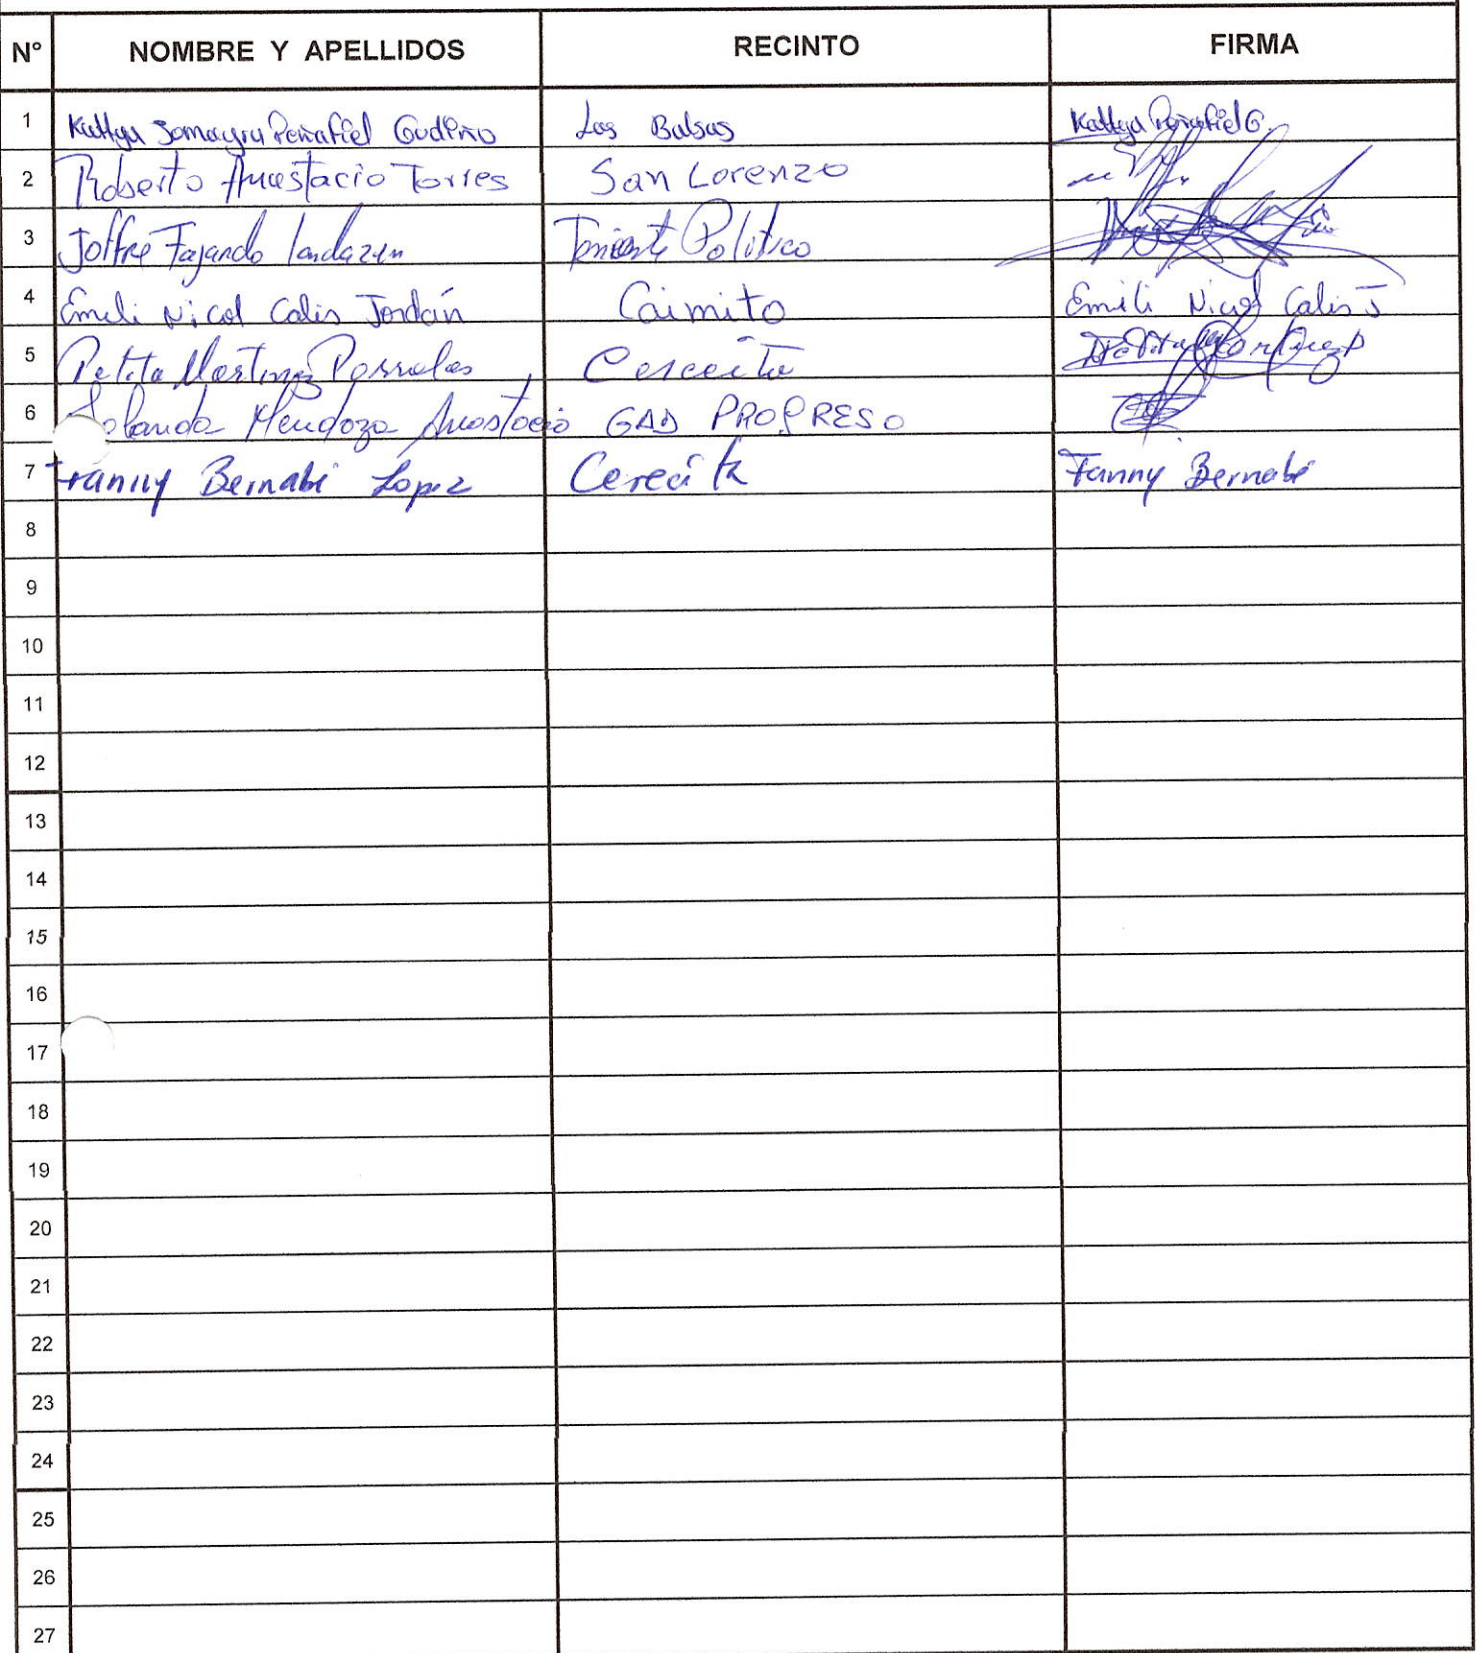 N° NOMBRE Y APELLIDOS RECINTO FIRMA
1 Kattya Jomayra Peñafiel Gudiño Las Balsas Kattya Peñafiel G.
2 Roberto Anastacio Torres San Lorenzo
3 Joffre Fajardo Landazuri Teniente Politico
4 Emili Nicol Calis Jordán Caimito Emili Nicol Calis J
5 Petita Martinez Parrales Cerecita
6 Mendoza Anastacio GAD PROGRESO
7 Fanny Bernabé Lopez Cerecita Fanny Bernabé
8
9
10
11
12
13
14
15
16
17
18
19
20
21
22
23
24
25
26
27